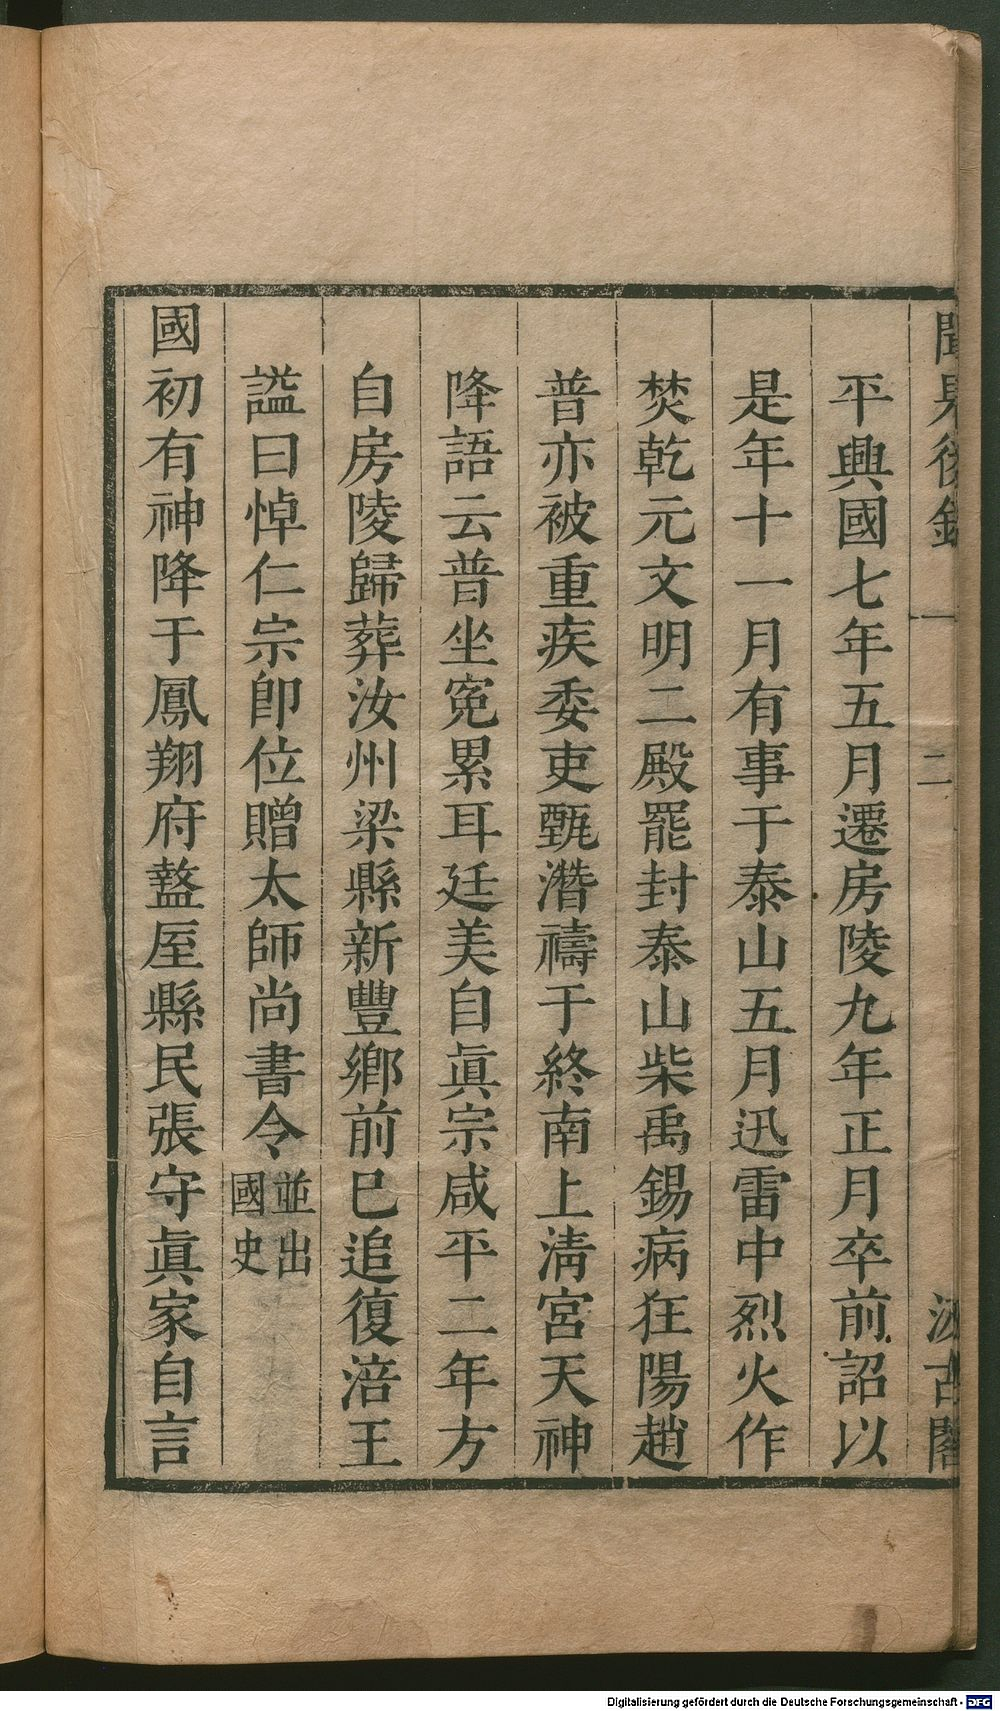 聞見後錄 一 二 汲古閣
平興國七年五月遷房陵九年正月卒前詔以
是年十一月有事于泰山五月迅雷中烈火作
焚乾元文明二殿罷封泰山柴禹錫病狂陽趙
普亦被重疾委吏甄潛禱于終南上淸宮天神
降語云普坐寃累耳廷美自眞宗咸平二年方
自房陵歸葬汝州梁縣新豐鄉前巳追復涪王
謚曰悼仁宗卽位贈太師尚書令並出國史
國初有神降于鳳翔府盩厔縣民張守眞家自言
Digitalisierung gefördert durch die Deutsche Forschungsgemeinschaft - DFG